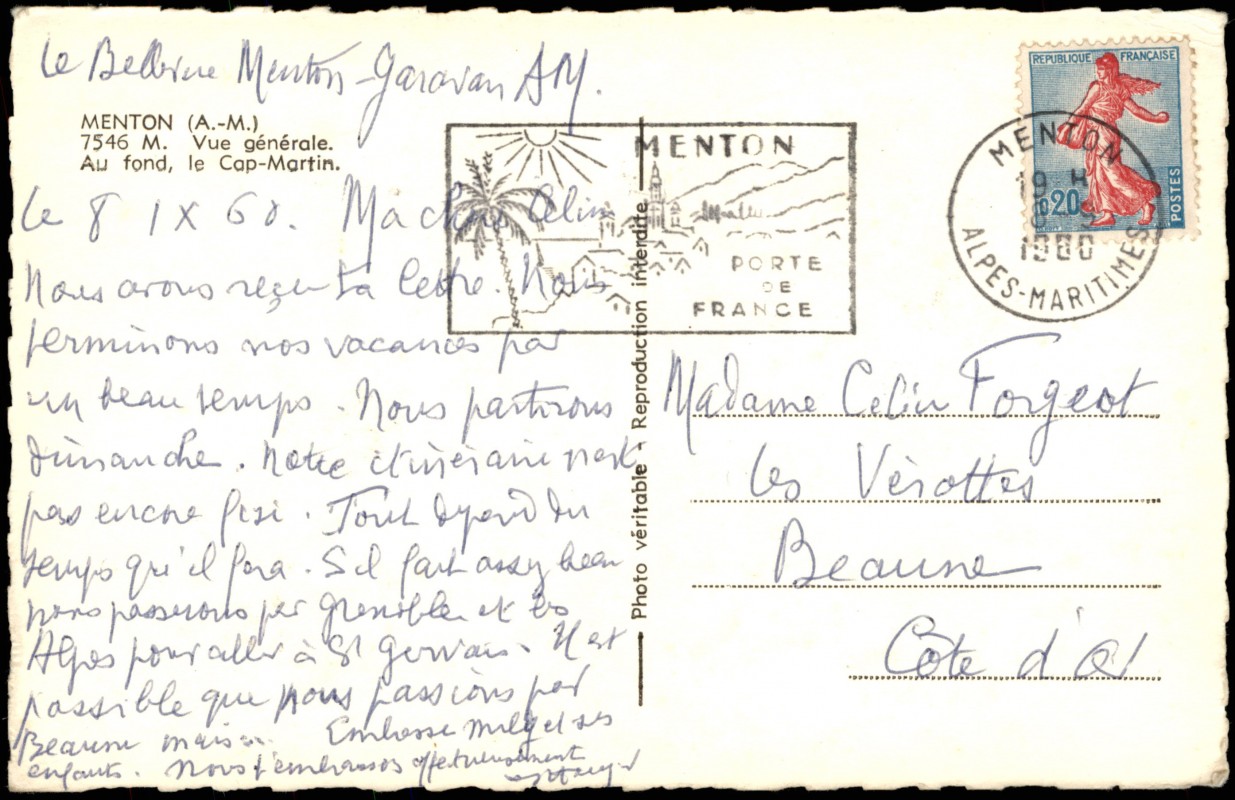 Le Bellevue Menton-Garavan AM.
MENTON (A.-M.)
7546 M. Vue générale.
Au fond, le Cap-Martin.
Le 8 IX 60. Ma chère Célin
Nous avons reçu ta lettre. Nous
terminons nos vacances par
un beau temps. Nous partirons
dimanche. Notre itinéraire n'est
pas encore fixé. Tout dépend du
temps qu'il fera. S'il fait assez beau
nous passerons par Grenoble et les
Alpes pour aller à St Gervais. Il est
possible que nous passions par
Beaune Embrasse et ses
enfants. Nous t'embrassons affectueusement
Photo véritable - Reproduction interdite
MENTON
PORTE
DE
FRANCE
REPUBLIQUE FRANÇAISE
0,20
POSTES
MENTON
19 H
8 - 9
1960
ALPES-MARITIMES
Madame Celin Forgeot
les Vérottes
Beaune
Côte d'Or